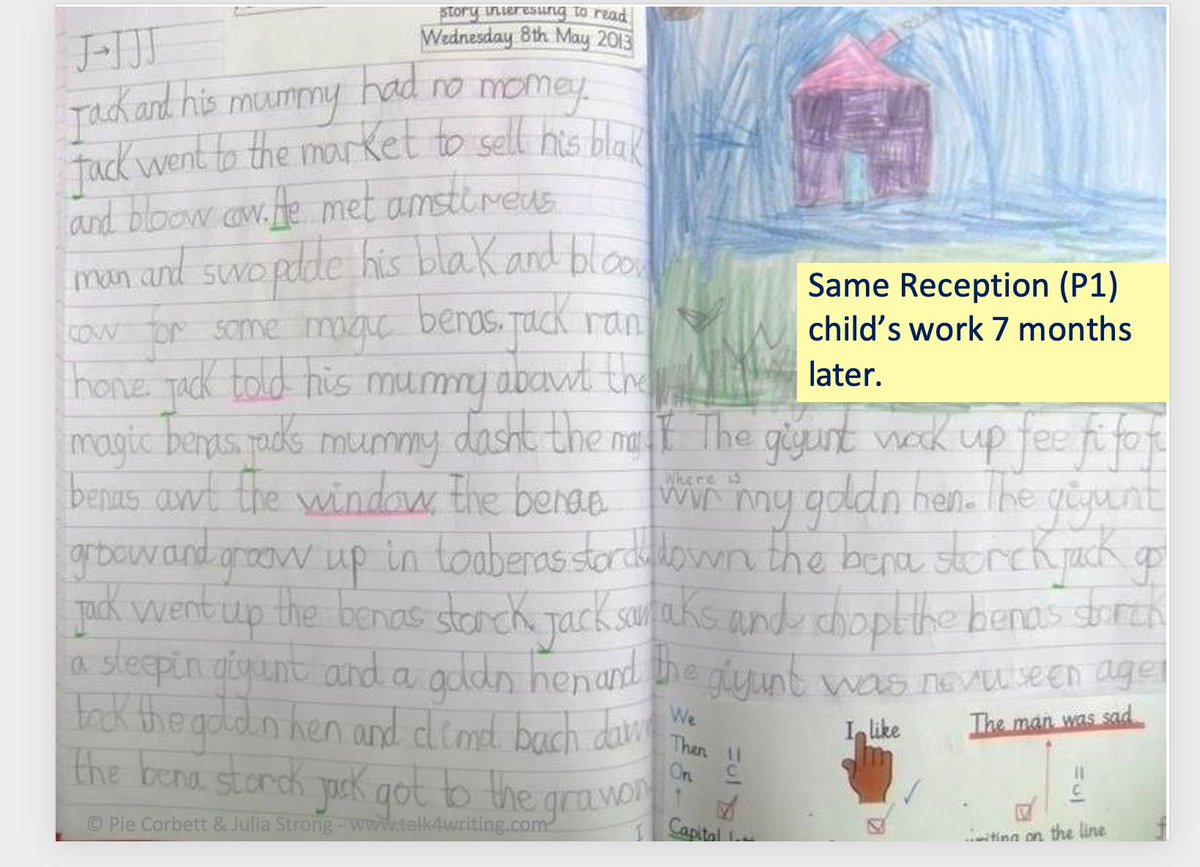 story interesting to read
Wednesday 8th May 2013
J→JJJ
Jack and his mummy had no momey.
Jack went to the market to sell his blak
and bloow cow. He met amstireus
man and swopdde his blak and bloow
cow for some magic benas. Jack ran
hone. Jack told his mummy abawt the
magic benas. Jacks mummy dasht the
benas awt the window. The benas
grboow and groow up in toaberas storck
Jack went up the benas storck Jack saw
a sleepin giyunt and a goldn hen and
tock the goldn hen and climd bach dawn
the bena storck Jack got to the
© Pie Corbett & Julia Strong - www.talk4writing.com
Same Reception (P1)
child's work 7 months
later.
The giyunt wock up fee fi fo
Where is
wir my goldn hen. The giyunt
down the bena storck Jack
aks and chopt the benas storck
the giyunt was nevu seen agen
We
Then
On
Capital
I like
The man was sad
writing on the line